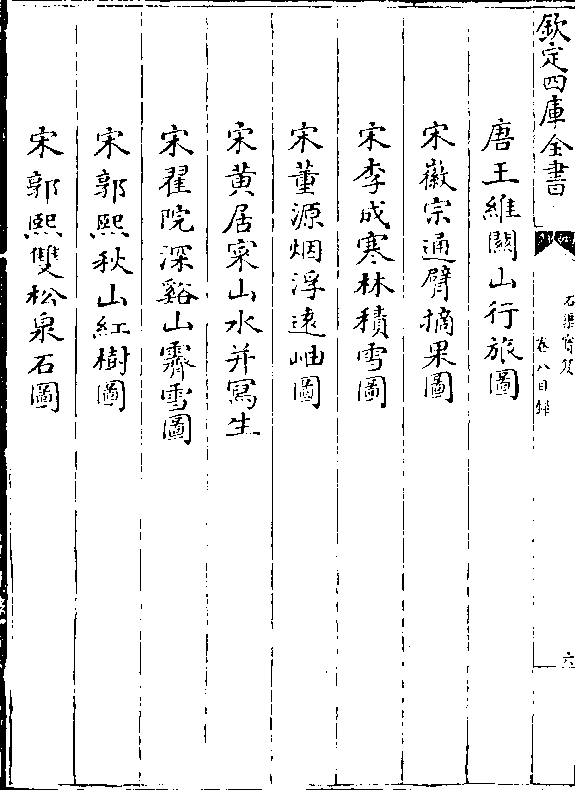 欽定四庫全書
石渠寶笈
卷八目録
六
唐王維關山行旅圖
宋徽宗通臂摘果圖
宋李成寒林積雪圖
宋董源烟浮遠岫圖
宋黄居寀山水并寫生
宋翟院深谿山霽雪圖
宋郭熙秋山紅樹圖
宋郭熙雙松泉石圖